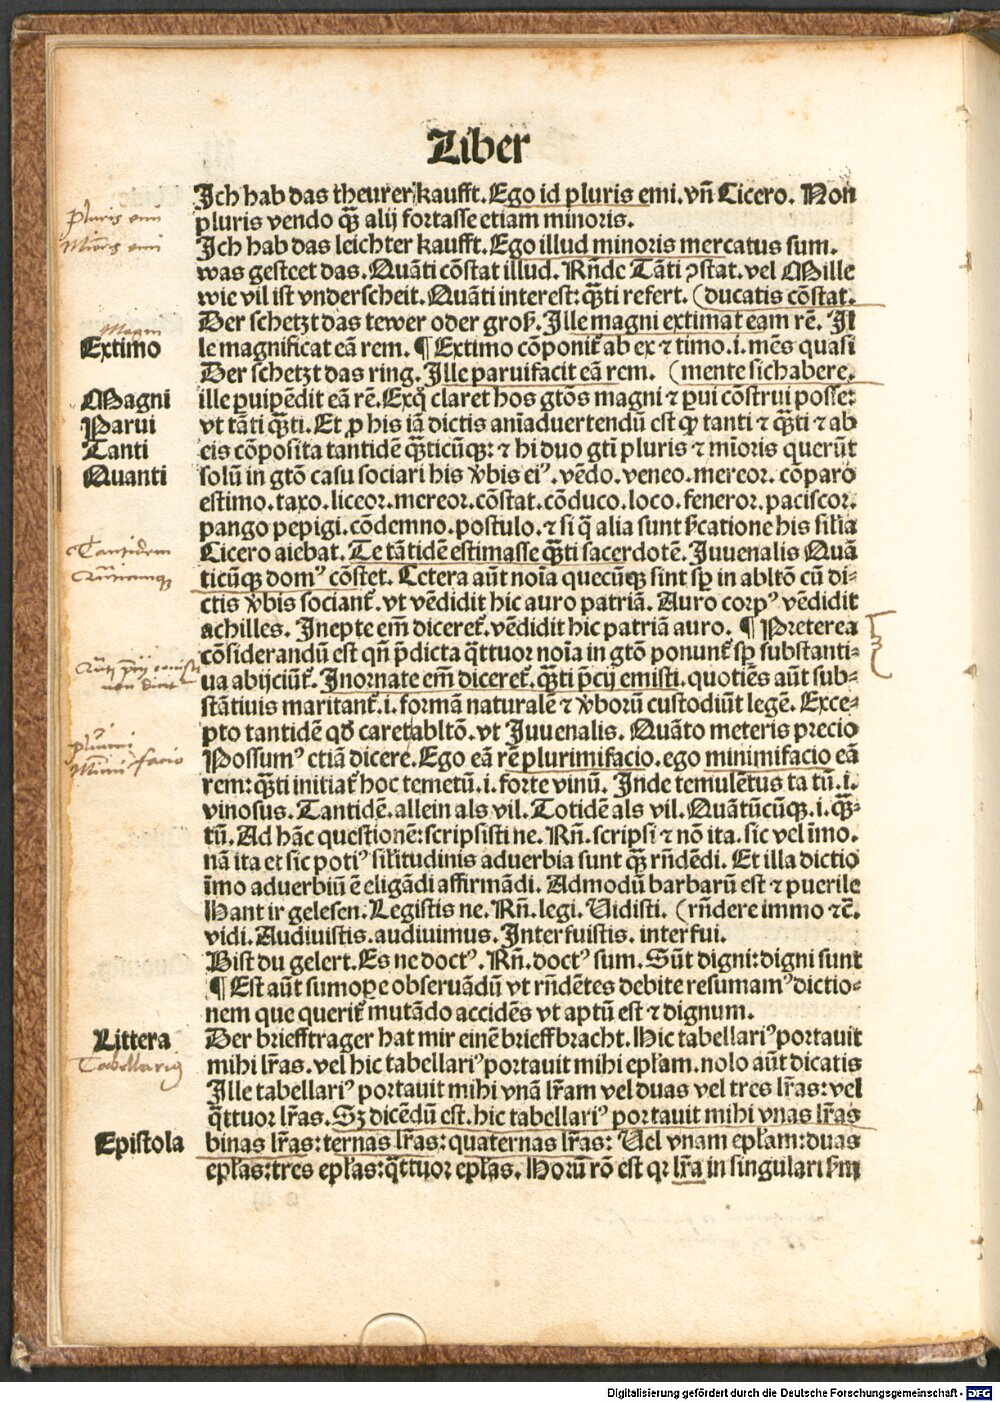 Liber
Ich hab das theurer kaufft. Ego id pluris emi. vñ Cicero. Non
pluris vendo q̃ȝ alij fortasse etiam minoris.
pluris emi
Minoris emi
Ich hab das leichter kaufft. Ego illud minoris mercatus sum.
was gestcet das. Quãti cõstat illud. Rñde Tãti ꝯstat. vel Mille
wie vil ist vnderscheit. Quãti interest: q̃ȝti refert. (ducatis cõstat.
Magni
Extimo
Der schetzt das tewer oder groß. Ille magni extimat eam rẽ. Il
le magnificat eã rem. ¶ Extimo cõponit᷑ ab ex ⁊ timo. i. mẽs quasi
Der schetzt das ring. Ille paruifacit eã rem. (mente sichabere.
Magni
Parui
Tanti
Quanti
ille ꝑuipẽdit eã rẽ. Exq̃ claret hos gtõs magni ⁊ ꝑui cõstrui posse:
vt tãti q̃ȝti. Et ꝓ his iã dictis aniaduertendũ est ꝙ tanti ⁊ q̃ȝti ⁊ ab
eis cõposita tantidẽ q̃ȝticũqȝ: ⁊ hi duo gti pluris ⁊ mĩoris querũt
solũ in gtõ casu sociari his v̾bis eiꝰ. vẽdo. veneo. mereor. cõparo
estimo. taxo. liceor. mereor. cõstat. cõduco. loco. feneror. paciscor.
pango pepigi. cõdemno. postulo. ⁊ si q̃ alia sunt s̾catione his silia
Tantidem
Cicero aiebat. Te tãtidẽ estimasse q̃ȝti sacerdotẽ. Juuenalis Quã
ticũqȝ domꝰ cõstet. Cetera aũt noĩa quecũqȝ sint sꝑ in abltõ cũ di⸗
ctis v̾bis sociant᷑. vt vẽdidit hic auro patriã. Auro corpꝰ vẽdidit
achilles. Inepte em̃ diceret᷑. vẽdidit hic patriã auro. ¶ Preterea
cõsiderandũ est qñ p̃dicta q̃ttuor noĩa in gtõ ponunt᷑ sꝑ substanti⸗
ua abijciũt᷑. Inornate em̃ diceret᷑. q̃ȝti p̃cij emisti. quotiẽs aũt sub⸗
stãtiuis maritant᷑. i. formã naturalẽ ⁊ v̾borũ custodiũt legẽ. Exce⸗
pto tantidẽ qd̃ caret abltõ. vt Juuenalis. Quãto meteris precio
facio
Possumꝰ etiã dicere. Ego eã rẽ plurimifacio. ego minimifacio eã
rem: q̃ȝti initiat᷑ hoc temetũ. i. forte vinũ. Inde temulẽtus ta tũ. i.
vinosus. Tantidẽ. allein als vil. Totidẽ als vil. Quãtũcũqȝ. i. q̃ȝ⸗
tũ. Ad hãc questionẽ: scripsisti ne. Rñ. scripsi ⁊ nõ ita. sic vel ĩmo.
nã ita et sic potiꝰ silitudinis aduerbia sunt q̃ȝ rñdẽdi. Et illa dictio
ĩmo aduerbiũ ẽ eligãdi affirmãdi. Admodũ barbarũ est ⁊ puerile
Hant ir gelesen. Legistis ne. Rñ. legi. Uidisti. (rñdere immo ⁊c̃.
vidi. Audiuistis. audiuimus. Interfuistis. interfui.
Bist du gelert. Es ne doctꝰ. Rñ. doctꝰ sum. Sũt digni: digni sunt
¶ Est aũt sumoꝑe obseruãdũ vt rñdẽtes debite resumamꝰ dictio⸗
nem que querit᷑ mutãdo accidẽs vt aptũ est ⁊ dignum.
Littera
Tabellarius
Der briefftrager hat mir einẽ brieff bracht. Hic tabellariꝰ portauit
mihi lr̃as. vel hic tabellariꝰ portauit mihi epl̃am. nolo aũt dicatis
Ille tabellariꝰ portauit mihi vnã lr̃am vel duas vel tres lr̃as: vel
q̃ttuor lr̃as. Sȝ dicẽdũ est. hic tabellariꝰ portauit mihi vnas lr̃as
Epistola
binas lr̃as: ternas lr̃as: quaternas lr̃as: Uel vnam epl̃am: duas
epl̃as: tres epl̃as: q̃ttuor epl̃as. Horũ rõ est qr lr̃a in singulari
Digitalisierung gefördert durch die Deutsche Forschungsgemeinschaft - DFG